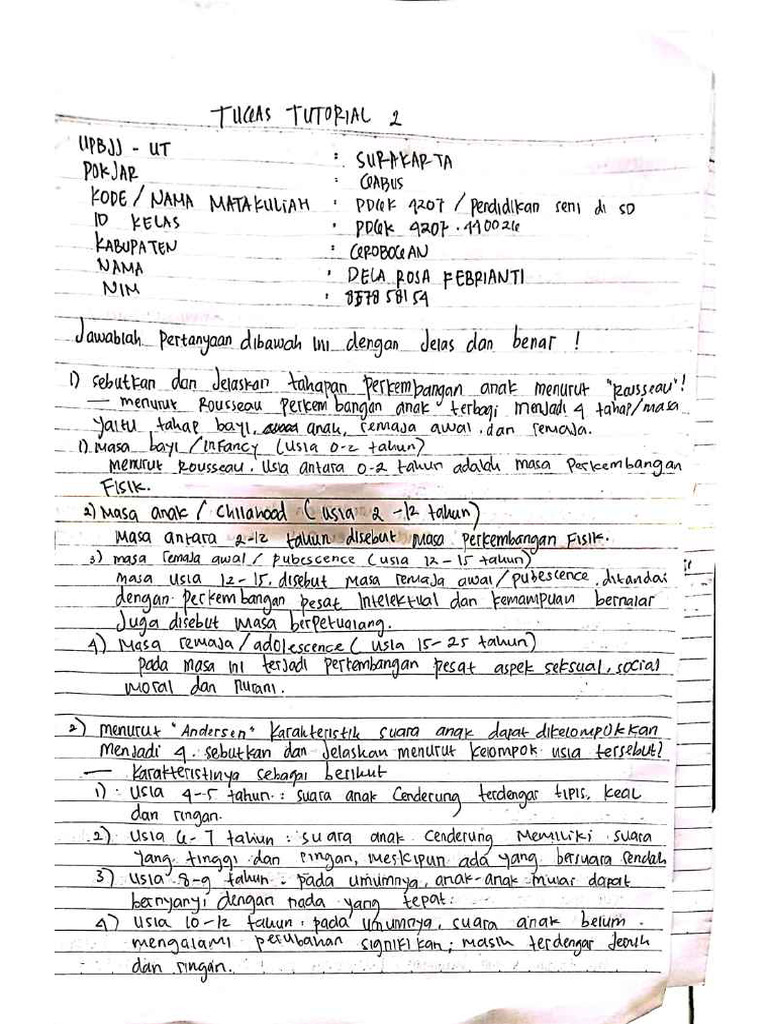 TUGAS TUTORIAL 2
UPBJJ - UT : SURAKARTA
POKJAR : GABUS
KODE / NAMA MATAKULIAH : PDGK 4207 / Pendidikan seni di SD
ID KELAS : PDGK 4207.110026
KABUPATEN : GROBOGAN
NAMA : DELA ROSA FEBRIANTI
NIM : 857858154
Jawablah Pertanyaan dibawah ini dengan jelas dan benar !
1) sebutkan dan Jelaskan tahapan perkembangan anak menurut "Rousseau"!
— menurut Rousseau perkembangan anak terbagi menjadi 4 tahap/masa
yaitu tahap bayi, anak, remaja awal, dan remaja.
1). Masa bayi / infancy (usia 0-2 tahun)
menurut Rousseau, usia antara 0-2 tahun adalah masa perkembangan
Fisik.
2) Masa anak / Childhood (usia 2-12 tahun)
Masa antara 2-12 tahun disebut masa perkembangan Fisik.
3) masa remaja awal / pubescence (usia 12-15 tahun)
masa usia 12-15, disebut Masa remaja awal/pubescence, ditandai
dengan perkembangan pesat intelektual dan kemampuan bernalar
Juga disebut masa berpetualang.
4) Masa remaja/adolescence (usia 15-25 tahun)
pada masa ini terjadi perkembangan pesat aspek seksual, social
moral dan nurani.
2) menurut "Andersen" karakteristik suara anak dapat dikelompokkan
menjadi 4. sebutkan dan jelaskan menurut kelompok usia tersebut!
— karakteristinya sebagai berikut
1) Usia 4-5 tahun : suara anak cenderung terdengar tipis, kecil
dan ringan.
2) Usia 6-7 tahun : suara anak cenderung memiliki suara
yang tinggi dan ringan, meskipun ada yang bersuara rendah
3) Usia 8-9 tahun : pada umumnya, anak-anak mulai dapat
bernyanyi dengan nada yang tepat.
4) Usia 10-12 tahun : pada umumnya, suara anak belum
mengalami perubahan signifikan; masih terdengar jernih
dan ringan.